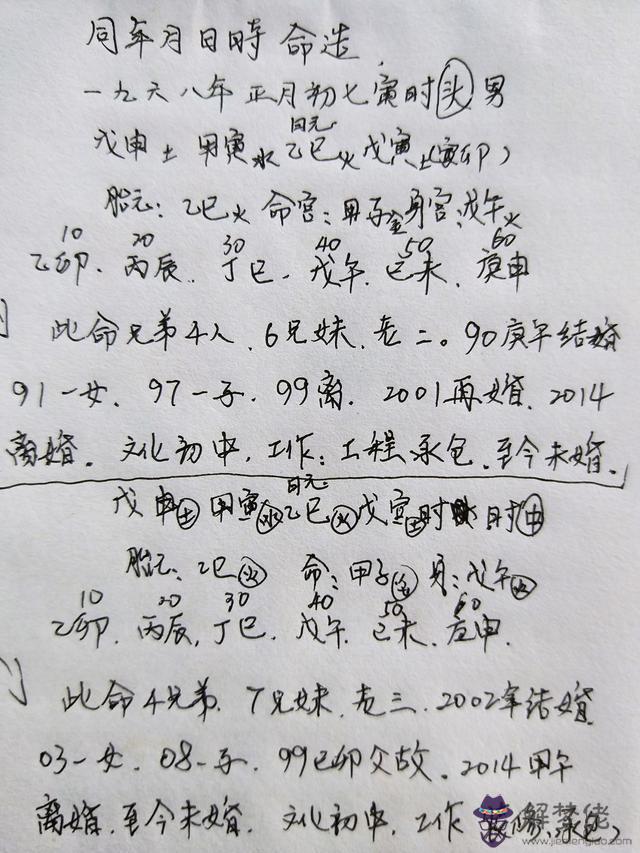 同年月日時 命造
一九六八年 正月初七寅时头 男
日元
戊申土 甲寅水 乙巳火 戊寅土(寅卯)
胎元:乙巳火 命宫:甲子金 身宫:戊午火
10 20 30 40 50 60
乙卯. 丙辰. 丁巳. 戊午. 己未. 庚申
此命兄弟4人.6兄妹.老二。90庚午结婚
91一女. 97一子. 99离. 2001再婚. 2014
离婚. 文化初中. 工作:工程承包.至今未婚.
日元
戊申土 甲寅水 乙巳火 戊寅土时 时中
胎元:乙巳火 命:甲子金 身:戊午火
10 20 30 40 50 60
乙卯. 丙辰. 丁巳. 戊午. 己未. 庚申.
此命4兄弟. 7兄妹.老三.2002年结婚
03一女. 08一子. 99己卯父故. 2014甲午
离婚.至今未婚. 文化初中. 工作 承包.
解梦佬
www.jiemenglao.com